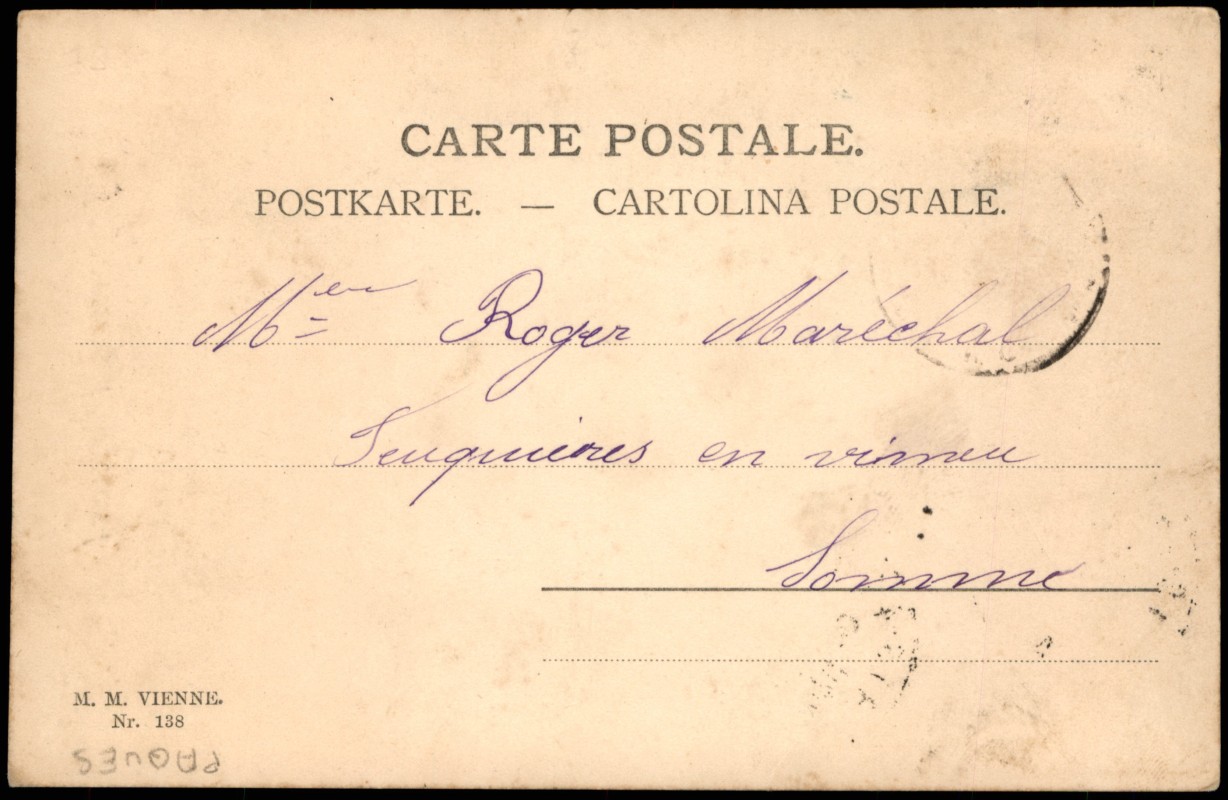 CARTE POSTALE.
POSTKARTE. — CARTOLINA POSTALE.
Roger Maréchal
Feuquières en vimeu
Somme
M. M. VIENNE.
Nr. 138
PAQUES